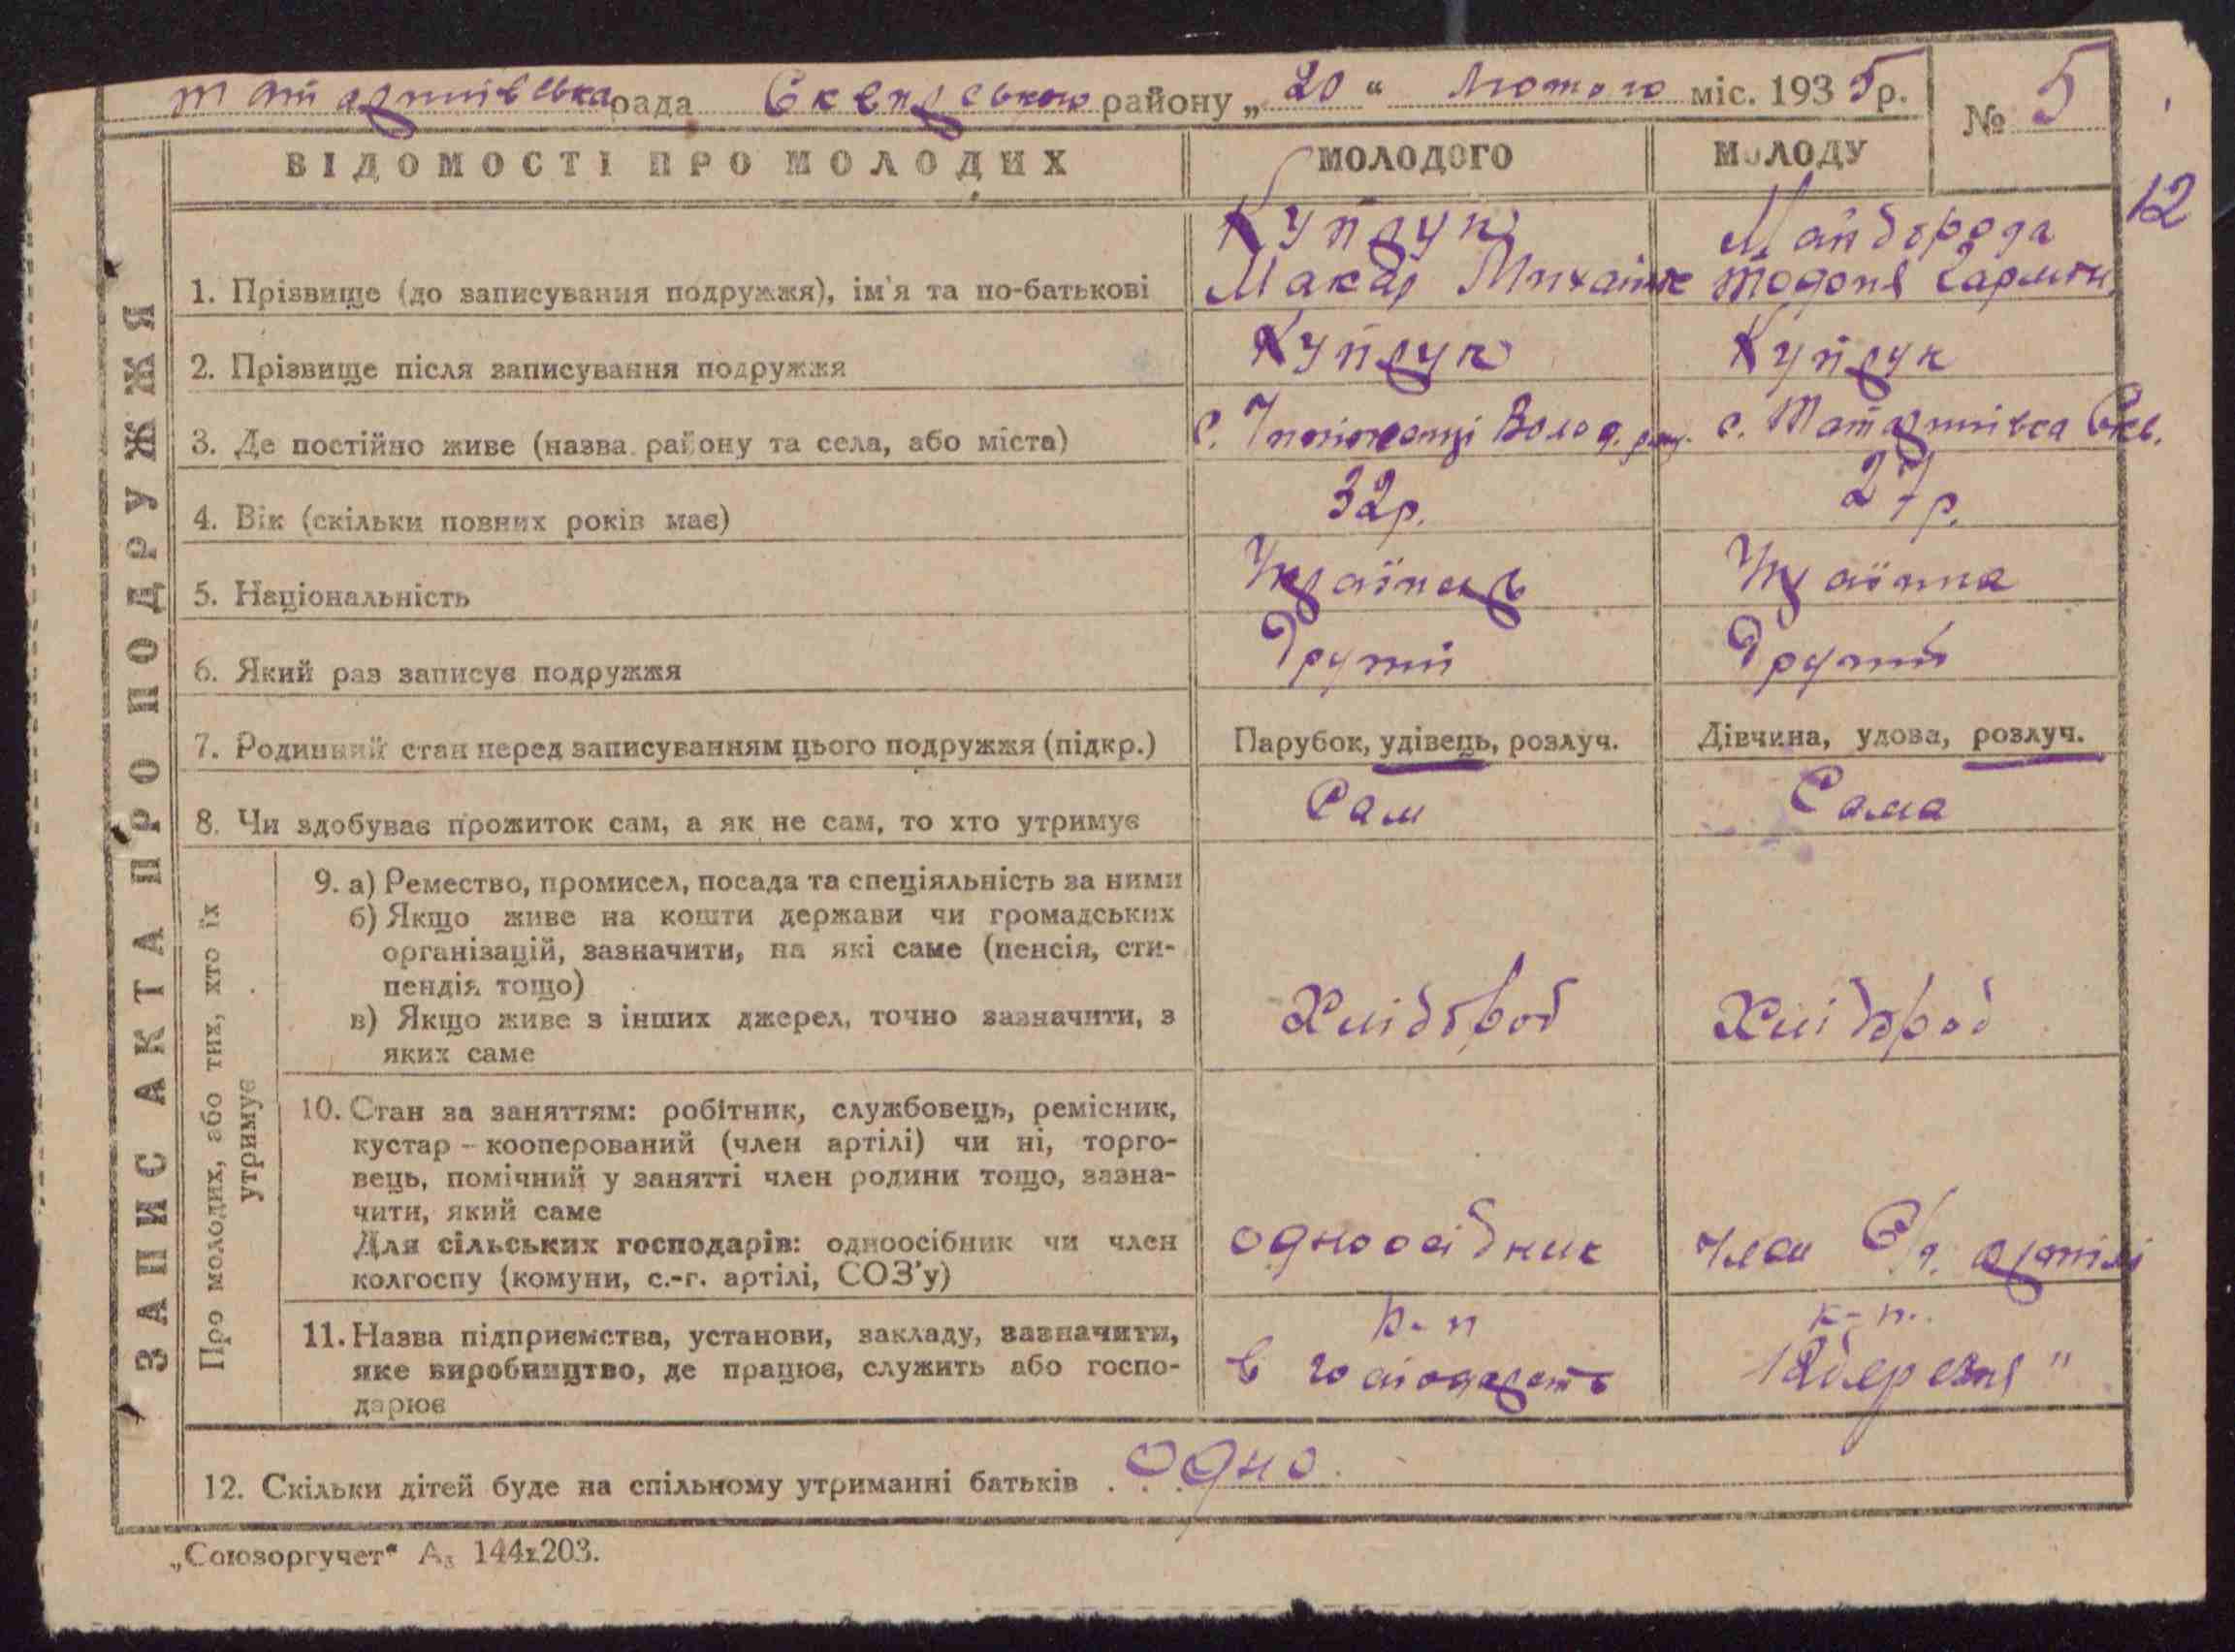 Татаринівська рада Сквирського району „20“ Лютого міс. 1935 р.
№ 5
ВІДОМОСТІ ПРО МОЛОДИХ МОЛОДОГО МОЛОДУ
12
Купрук Майборода
1. Прізвище (до записування подружжя), ім'я та по-батькові Макар Тодоня
2. Прізвище після записування подружжя Купрук Купрук
3. Де постійно живе (назва району та села, або міста) с. Волод. рай. с. Татаринівка Скв.
4. Вік (скільки повних років має) 32р. 27р.
5. Національність Українець Українка
6. Який раз записує подружжя Другий Другий
7. Родинний стан перед записуванням цього подружжя (підкр.) Парубок, удівець, розлуч. Дівчина, удова, розлуч.
8. Чи здобуває прожиток сам, а як не сам, то хто утримує Сам Сама
ЗАПИС АКТА ПРО ПОДРУЖЖЯ
Про молодих, або тих, хто їх
утримує
9. а) Ремество, промисел, посада та спеціяльність за ними
б) Якщо живе на кошти держави чи громадських
організацій, зазначити, на які саме (пенсія, сти-
пендія тощо)
в) Якщо живе з інших джерел, точно зазначити, з
яких саме
Хлібороб Хлібороб
10. Стан за заняттям: робітник, службовець, ремісник,
кустар – кооперований (член артілі) чи ні, торго-
вець, помічний у занятті член родини тощо, зазна-
чити, який саме
Для сільських господарів: одноосібник чи член
колгоспу (комуни, с.-г. артілі, СОЗ'у)
одноосібник член С/г. артілі
11. Назва підприємства, установи, закладу, зазначити,
яке виробництво, де працює, служить або госпо-
дарює
к-п.
в
12. Скільки дітей буде на спільному утриманні батьків . . . одно
„Союзоргучет“ А₅ 144х203.